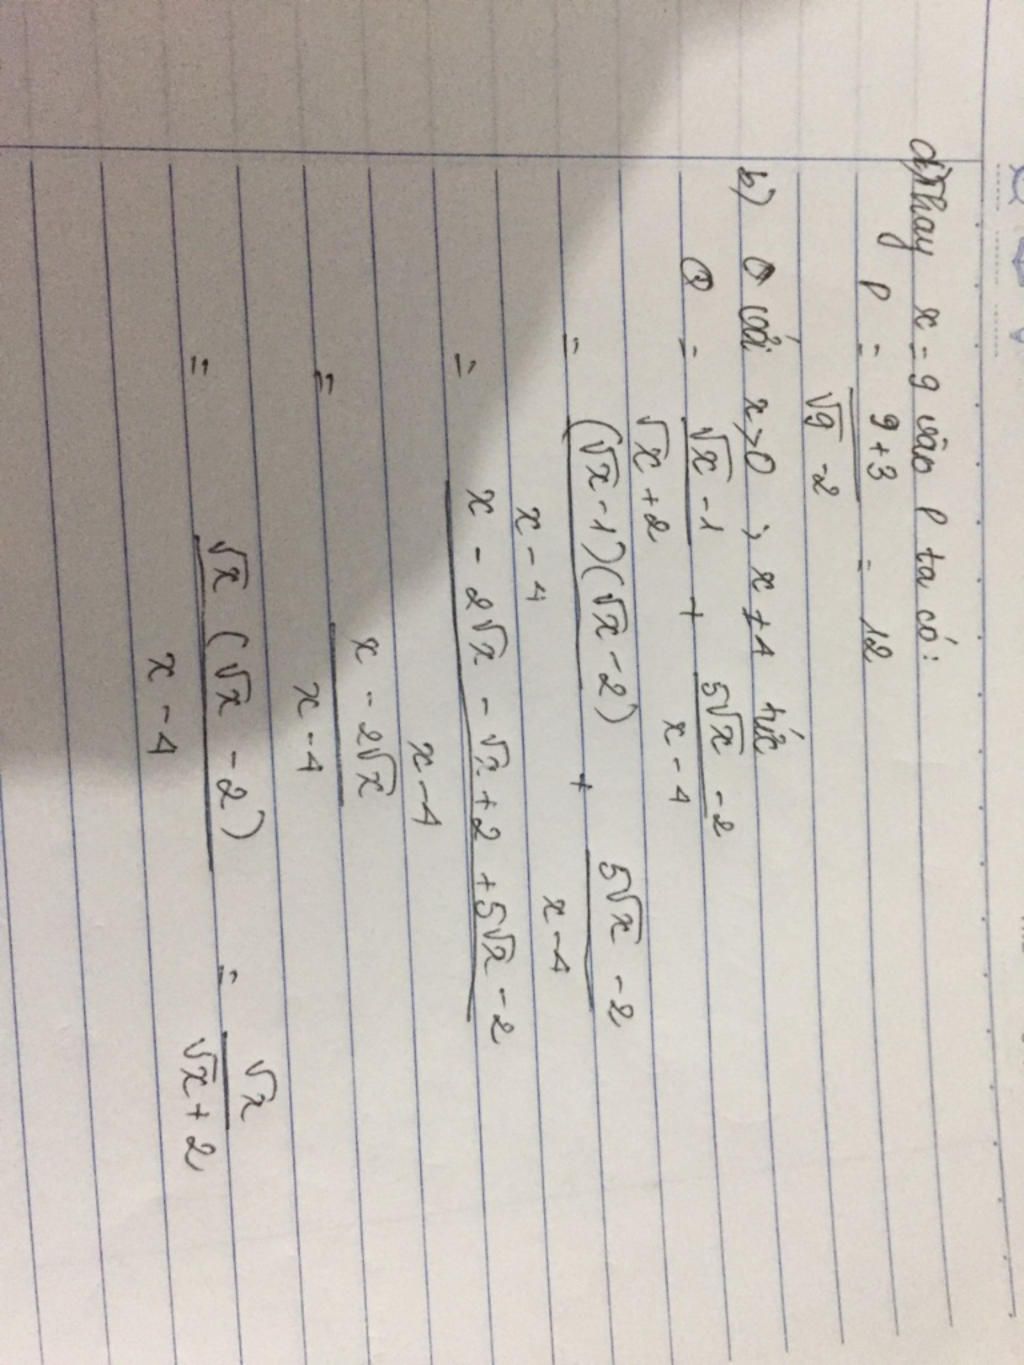 a) Thay x = 9 vào P ta có:
P = \frac{9+3}{\sqrt{9}-2} = 12
b) Q với x>0 ; x ≠ 4 tức
Q = \frac{\sqrt{x}-1}{\sqrt{x}+2} + \frac{5\sqrt{x}-2}{x-4}
= \frac{(\sqrt{x}-1)(\sqrt{x}-2)}{x-4} + \frac{5\sqrt{x}-2}{x-4}
= \frac{x-2\sqrt{x}-\sqrt{x}+2+5\sqrt{x}-2}{x-4}
= \frac{x-2\sqrt{x}}{x-4}
= \frac{\sqrt{x}(\sqrt{x}-2)}{x-4} = \frac{\sqrt{x}}{\sqrt{x}+2}